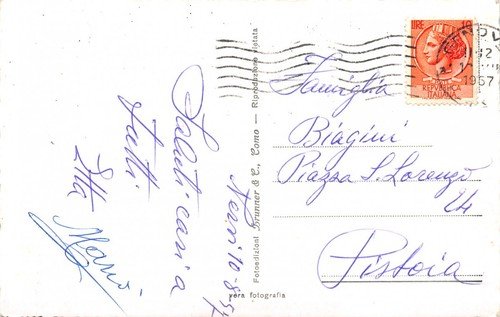 Saluti cari a
tutti
Itta
Mario
Nervi 10-8-57
Fotoedizioni Brunner & C., Como - Riproduzione vietata
vera fotografia
LIRE 10
REPVBBLICA
ITALIANA
GENOV
1957
Famiglia
Biagini
Piazza S. Lorenzo
24
Pistoia